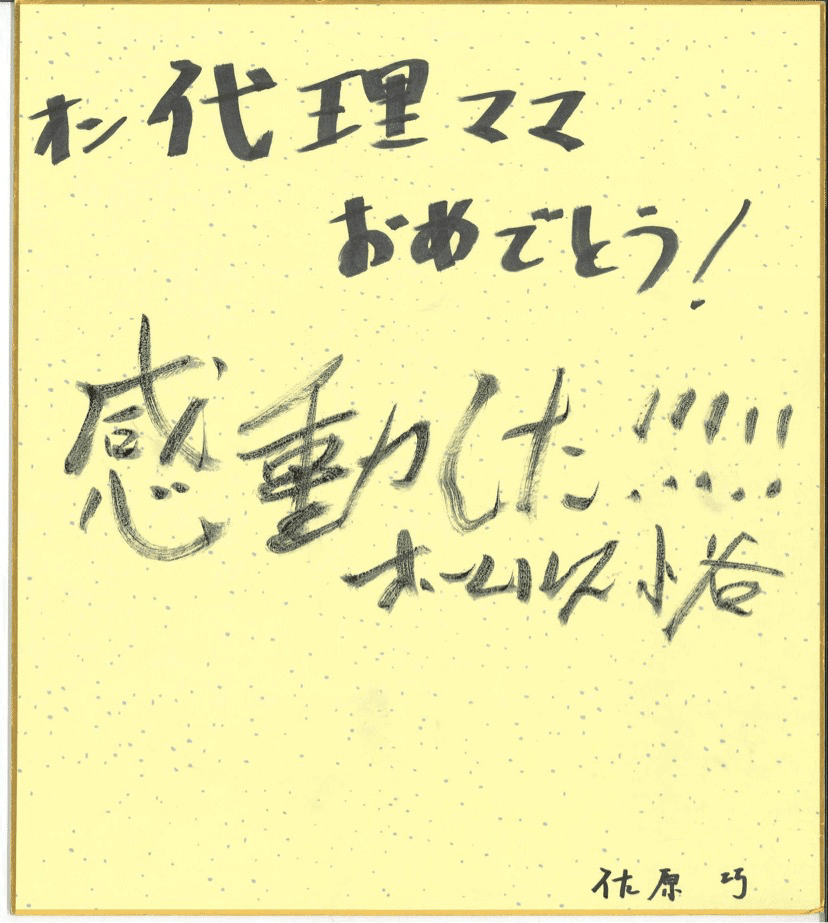 オン代理ママ
おめでとう!
感動した!!!!!
ホームルス小谷
佐原 巧